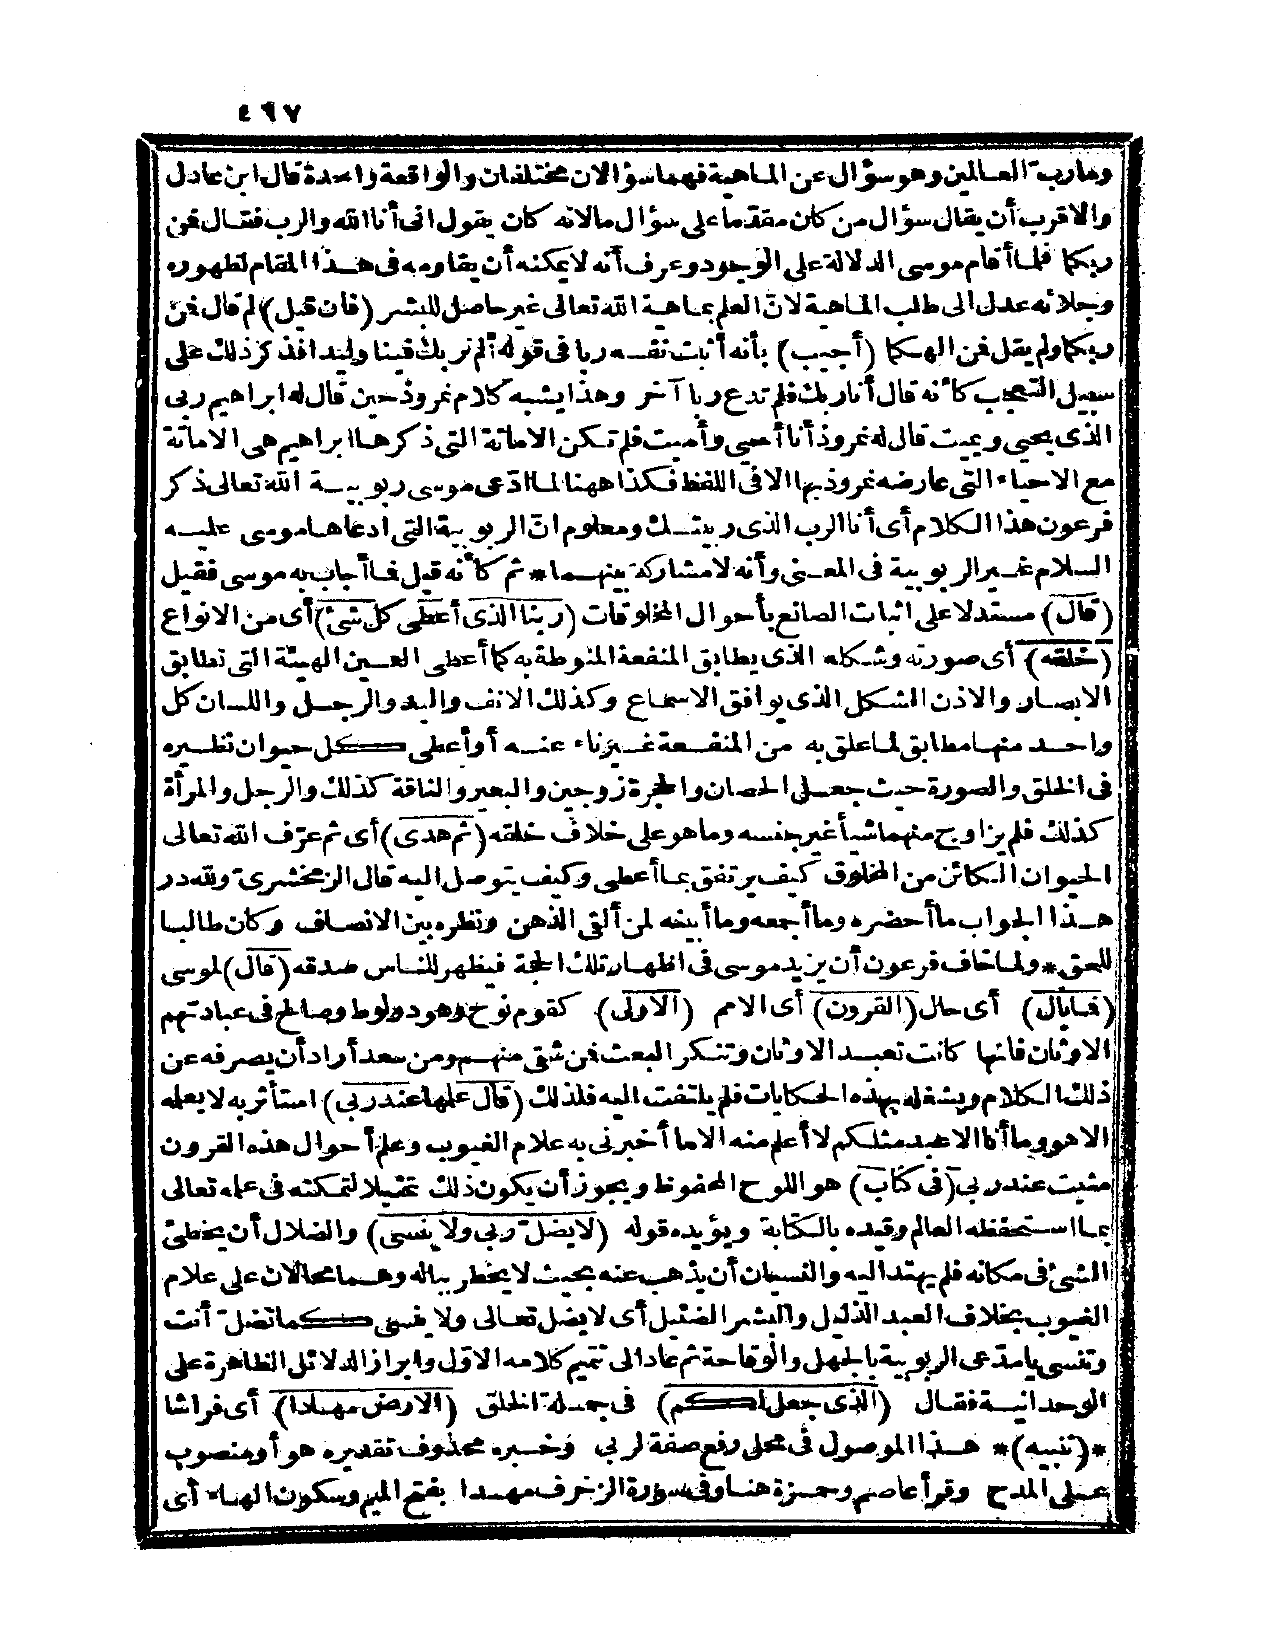 ٤٩٧
وما رب العالمين وهو سؤال عن الماهية فهما سؤالان مختلفان والواقعة واحدة قال ابن عادل
والاقرب أن يقال سؤال من كان مقدما على سؤال ما لانه كان يقول انى أنا الله والرب فقال فمن
ربكما فلما أقام موسى الدلالة على الوجود وعرف أنه لا يمكنه أن يقاومه فى هذا المقام لظهوره
وجلائه عدل الى طلب الماهية لانّ العلم بماهية الله تعالى غير حاصل للبشر (فان قيل) لم قال فمن
ربكما ولم يقل فمن الهكما (أجيب) بأنه أثبت نفسه ربا فى قوله ألم نربك فينا وليدا فذكر ذلك على
سبيل التعجب كأنه قال أنا ربك فلم تدع ربا آخر وهذا يشبه كلام نمروذ حين قال له ابراهيم ربى
الذى يحيى ويميت قال له نمروذ أنا أحيى وأميت فلم تكن الاماتة التى ذكرها ابراهيم هى الاماتة
مع الاحياء التى عارضه نمروذ بها الا فى اللفظ فكذا ههنا لما ادّعى موسى ربوبية الله تعالى ذكر
فرعون هذا الكلام أى أنا الرب الذى ربيتك ومعلوم انّ الربوبية التى ادعاها موسى عليه
السلام غير الربوبية فى المعنى وأنه لا مشاركة بينهما * ثم كأنه قيل فما أجاب به موسى فقيل
(قال) مستدلا على اثبات الصانع بأحوال المخلوقات (ربنا الذى أعطى كل شئ) أى من الانواع
(خلقه) أى صورته وشكله الذى يطابق المنفعة المنوطة به كما أعطى العين الهيئة التى تطابق
الابصار والاذن الشكل الذى يوافق الاسماع وكذلك الانف واليد والرجل واللسان كل
واحد منها مطابق لما علق به من المنفعة غير ناء عنه أو أعطى كل حيوان نظيره
فى الخلق والصورة حيث جعل الحصان والحجرة زوجين والبعير والناقة كذلك والرجل والمرأة
كذلك فلم يزاوج منهما شيأ غير جنسه وما هو على خلاف خلقه (ثم هدى) أى ثم عرّف الله تعالى
الحيوان الكائن من المخلوق كيف يرتفق بما أعطى وكيف يتوصل اليه قال الزمخشرىّ ولله در
هذا الجواب ما أحضره وما أجمعه وما أبينه لمن ألقى الذهن ونظره بين الانصاف وكان طالبا
للحق * ولما خاف فرعون أن يزيد موسى فى اظهار تلك الحجة فيظهر للناس صدقه (قال) لموسى
(فما بال) أى حال (القرون) أى الامم (الاولى) كقوم نوح وهود ولوط وصالح فى عبادتهم
الاوثان فانها كانت تعبد الاوثان وتنكر البعث فمن شقى منهم ومن سعد أراد أن يصرفه عن
ذلك الكلام ويشغله بهذه الحكايات فلم يلتفت اليه فلذلك (قال علمها عند ربى) استأثر به لا يعلمه
الا هو وما أنا الا عبد مثلكم لا أعلم منه الا ما أخبرنى به علام الغيوب وعلم أحوال هذه القرون
مثبت عند ربى (فى كتاب) هو اللوح المحفوظ ويجوز أن يكون ذلك تمثيلا لتمكنه فى علمه تعالى
بما استحفظه العالم وقيده بالكتابة ويؤيده قوله (لا يضلّ ربى ولا ينسى) والضلال أن يخطئ
الشئ فى مكانه فلم يهتد اليه والنسيان أن يذهب عنه بحيث لا يخطر بباله وهما محالان على علام
الغيوب بخلاف العبد الذليل والبشر الضئيل أى لا يضل تعالى ولا ينسى كما تضلّ أنت
وتنسى يا مدّعى الربوبية بالجهل والوقاحة ثم عاد الى تتميم كلامه الاوّل وابراز الدلائل الظاهرة على
الوحدانية فقال (الذى جعل لكم) فى جملة الخلق (الارض مهادا) أى فراشا
*(تنبيه)* هذا الموصول فى محل رفع صفة لربى وخبره محذوف تقديره هو أو منصوب
على المدح وقرأ عاصم وحمزة هنا وفى سورة الزخرف مهدا بفتح الميم وسكون الهاء أى